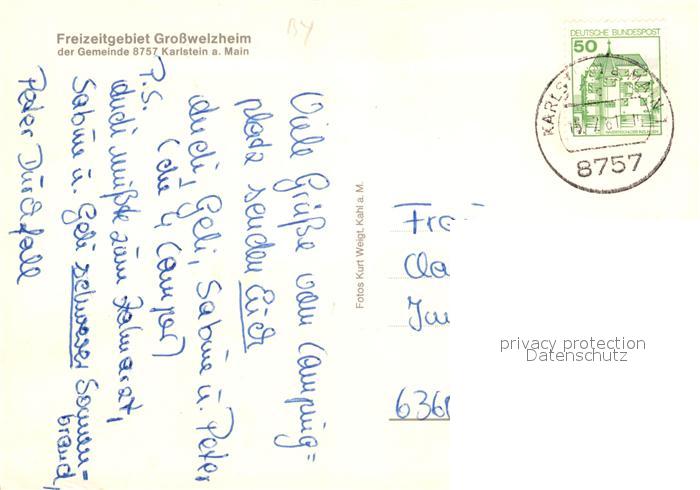 Freizeitgebiet Großwelzheim
der Gemeinde 8757 Karlstein a. Main
BY
DEUTSCHE BUNDESPOST
50
8757
Viele Grüße vom Camping=
platz senden Euch
Geli, Sabine u. Peter
(die 4 Camper)
P.S.
müßte zum Zahnarzt,
Sabine u. Geli schweren Sonnen=
brand,
Peter Durchfall
Fotos Kurt Weigt, Kahl a. M.
privacy protection
Datenschutz